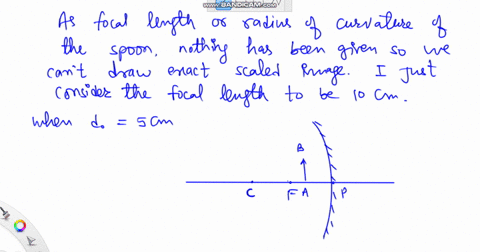 WWW.BANDICAM.COM
As focal length or radius of curvature of
the spoon, nothing has been given so we
can't draw exact scaled image. I just
consider the focal length to be 10 cm.
when d₀ = 5 cm
B
C F A P